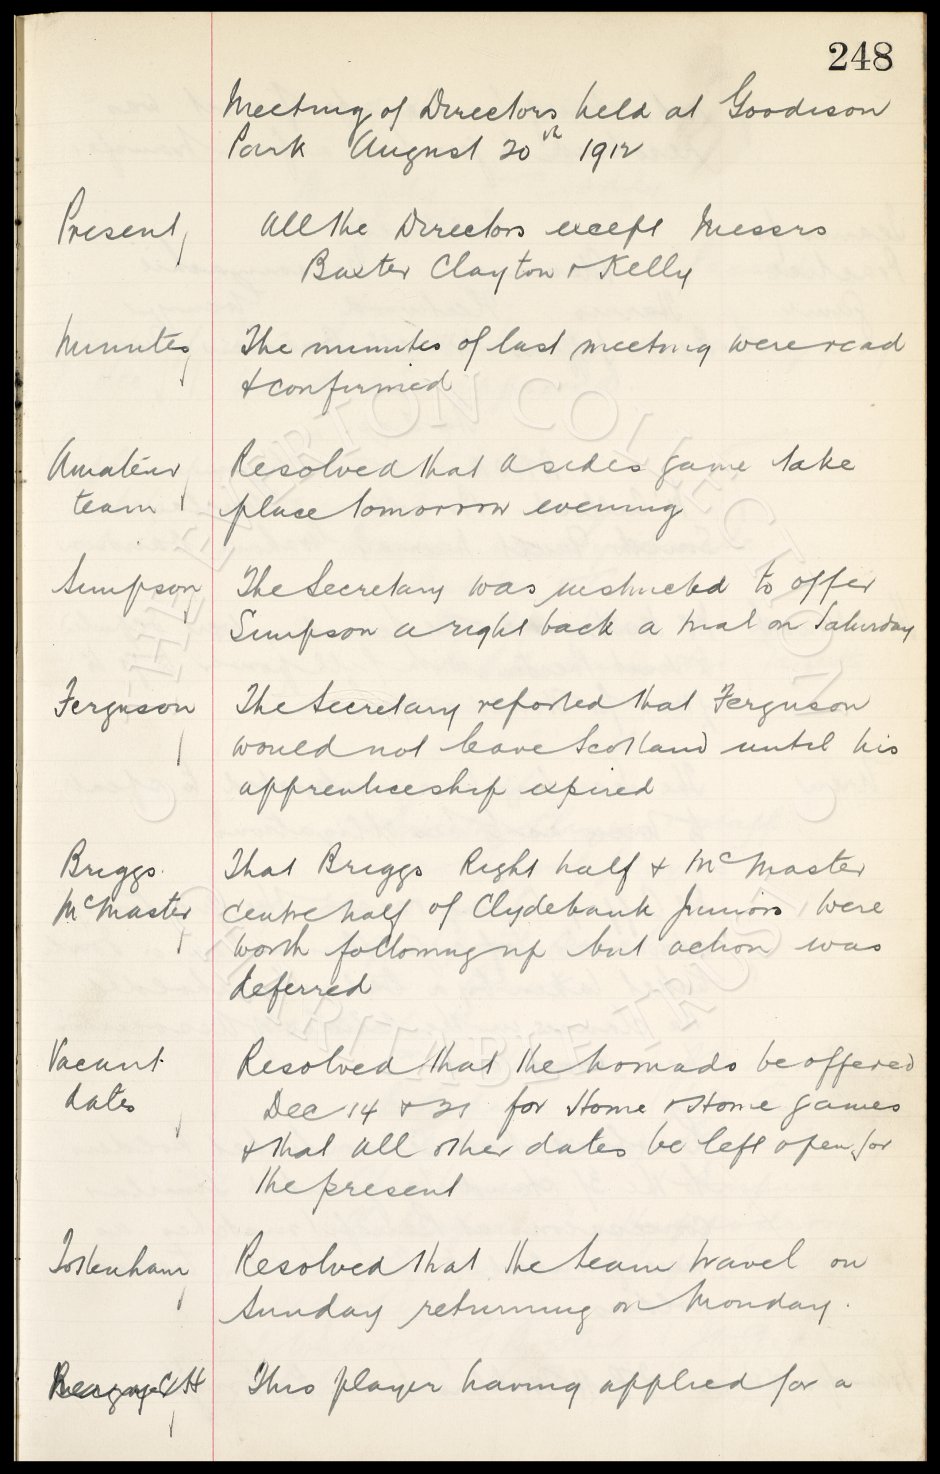 248
Meeting of Directors held at Goodison
Park August 20th 1912
Present
All the Directors except Messrs
Baxter Clayton & Kelly
Minutes
The minutes of last meeting were read
& confirmed
Amateur
team
Resolved that a sides game take
place tomorrow evening
Simpson
The Secretary was instructed to offer
Simpson a right back a trial on Saturday
Ferguson
The Secretary reported that Ferguson
would not leave Scotland until his
apprenticeship expired
Briggs
McMaster
That Briggs Right half & McMaster
centre half of Clydebank Juniors were
worth following up but action was
deferred
Vacant
dates
Resolved that the Nomads be offered
Dec 14 & 21 for Home & Home games
& that all other dates be left open for
the present
Tottenham
Resolved that the team travel on
Sunday returning on Monday.
H
This player having applied for a
THE EVERTON COLLECTION
CHARITABLE TRUST